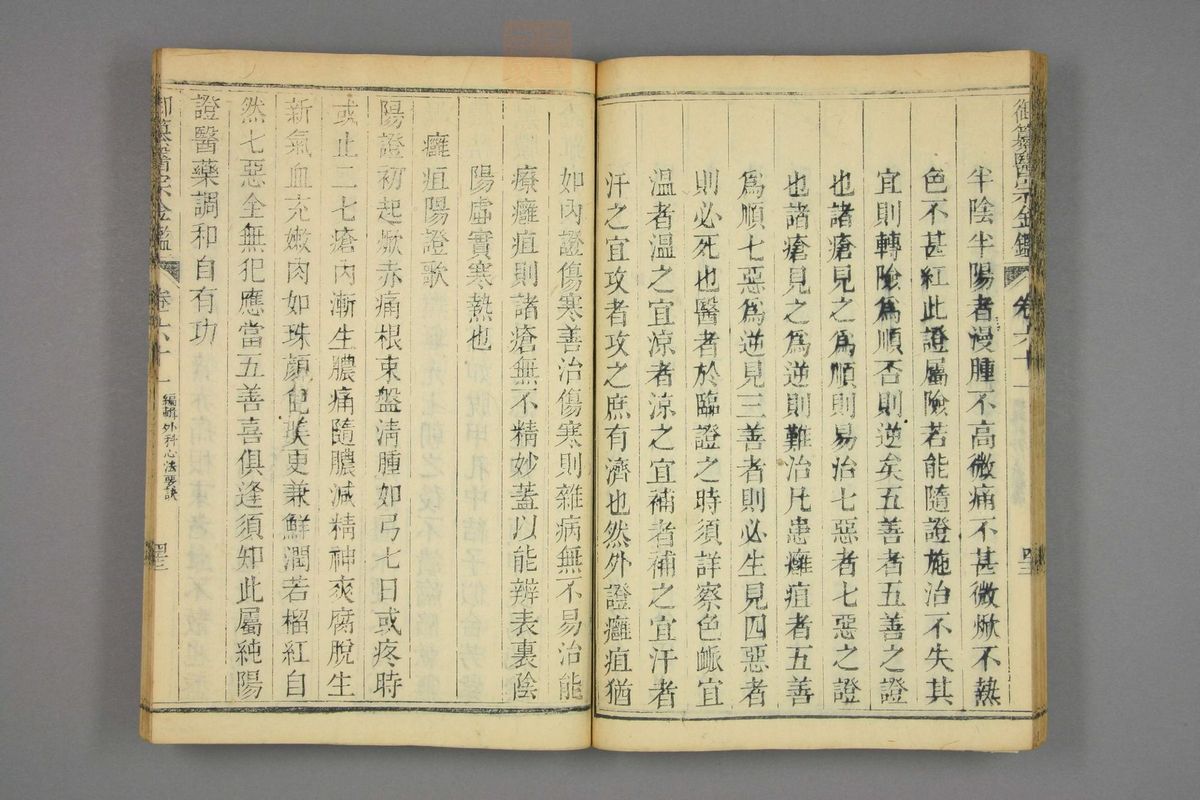 御纂醫宗金鑑 卷六十一
半陰半陽者漫腫不高微痛不甚微焮不熱
色不甚紅此證屬險若能隨證施治不失其
宜則轉險爲順否則逆矣五善者五善之證
也諸瘡見之爲順則易治七惡者七惡之證
也諸瘡見之爲逆則難治凡患癰疽者五善
爲順七惡爲逆見三善者則必生見四惡者
則必死也醫者於臨證之時須詳察色脈宜
溫者溫之宜涼者涼之宜補者補之宜汗者
汗之宜攻者攻之庶有濟也然外證癰疽猶
如內證傷寒善治傷寒則雜病無不易治能
療癰疽則諸瘡無不精妙蓋以能辨表裏陰
陽虛實寒熱也
癰疽陽證歌
陽證初起焮赤痛根束盤清腫如弓七日或疼時
或止二七瘡內漸生膿痛隨膿減精神爽腐脫生
新氣血充嫩肉如珠顏色美更兼鮮潤若榴紅自
然七惡全無犯應當五善喜俱逢須知此屬純陽
證醫藥調和自有功
御纂醫宗金鑑 卷六十一 編輯外科心法要訣